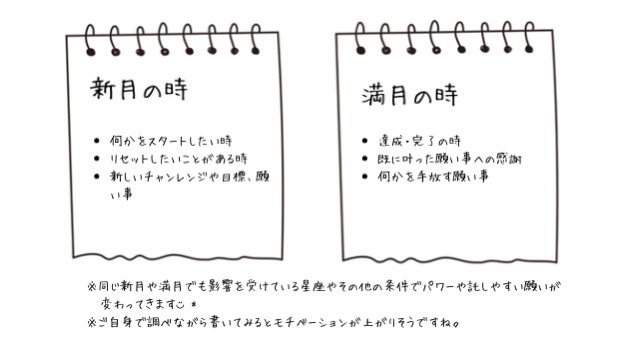 新月の時
• 何かをスタートしたい時
• リセットしたいことがある時
• 新しいチャンレンジや目標、願
い事
満月の時
• 達成・完了の時
• 既に叶った願い事への感謝
• 何かを手放す願い事
※同じ新月や満月でも影響を受けている星座やその他の条件でパワーや託しやすい願いが
変わってきます☺︎ *
※ご自身で調べながら書いてみるとモチベーションが上がりそうですね。